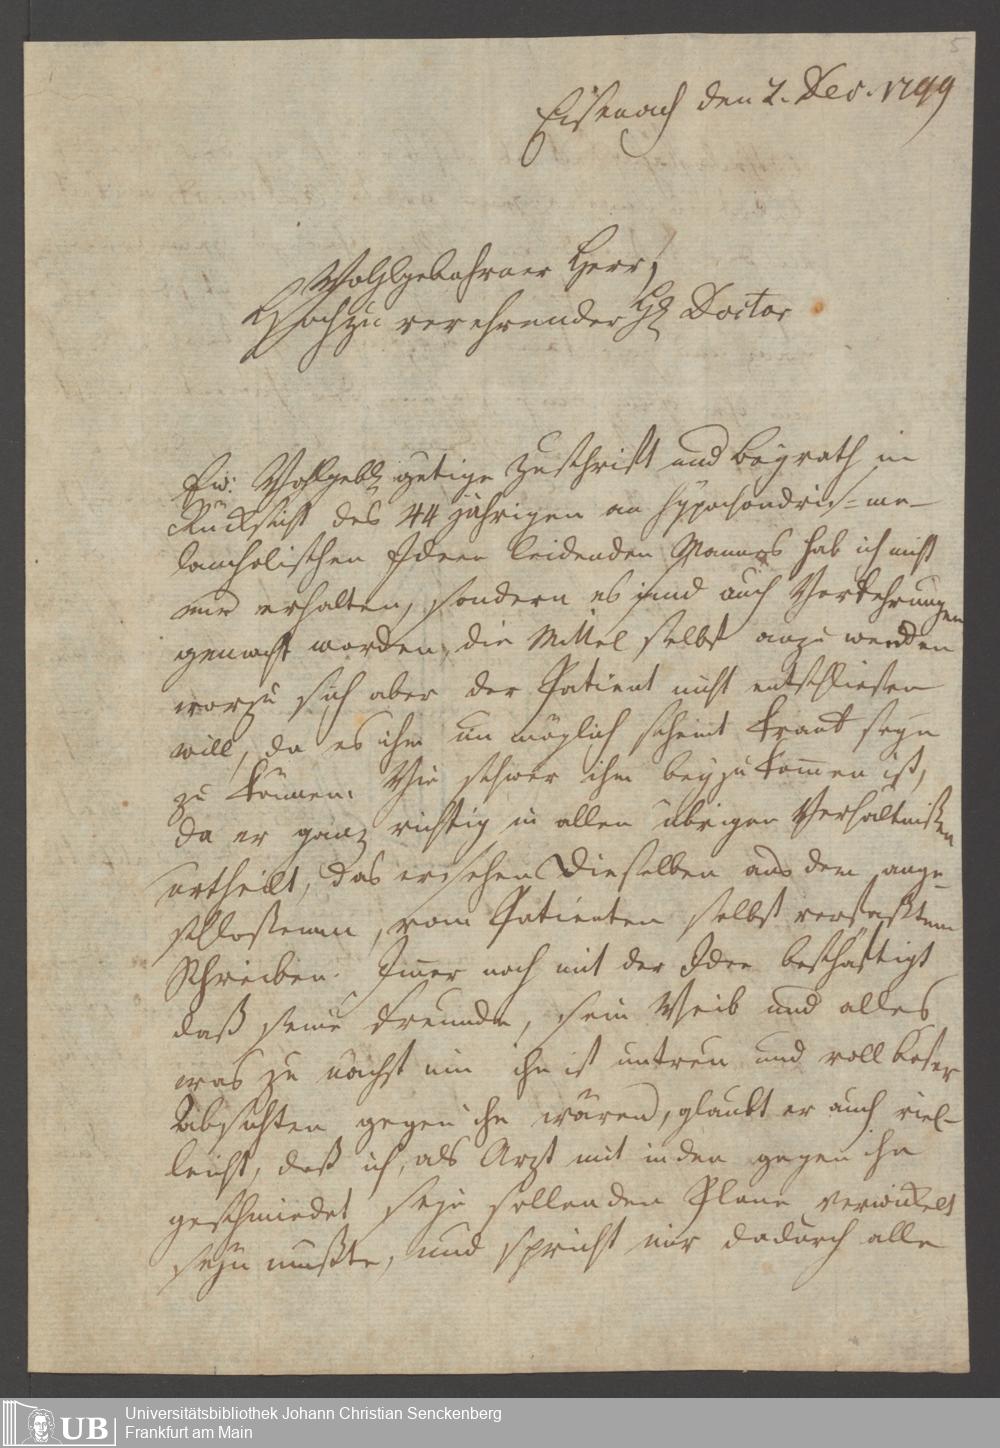 5
Eisenach den 2. Dec. 1799
Wohlgebohrner Herr,
Hochzu verehrender H Doctor
Ew: Wohlgeb gütige Zuschrift und Beyrath in
Rücksicht des 44 jährigen an hÿpochondris-me-
lancholischen Ideen leidenden Mannes hab ich nicht
nur erhalten, sondern es sind auch Vorkehrungen
gemacht worden, die Mittel selbst anzu wenden
worzu sich aber der Patient nicht entschliesen
will, da es ihm un möglich scheint krank seyn
zu können. Wie schwer ihm beyzukom̅en ist,
da er ganz richtig in allen übrigen Verhältnißen
urtheilt, das ersehen Dieselben aus dem ange-
schloßenen, vom Patienten selbst verfaßtem
Schreiben. Im̅er noch mit der Idee beschäftigt
daß seine Freunde, sein Weib und alles
was zu nächst um ihn ist untreu und voll böser
Absichten gegen ihn wären, glaubt er auch viel-
leicht, daß ich, als Arzt mit in den gegen ihn
geschmiedet seyn sollenden Plane verwickelt
seÿn mußte, und spricht mir dadurch alle
Universitätsbibliothek Johann Christian Senckenberg
Frankfurt am Main
UB